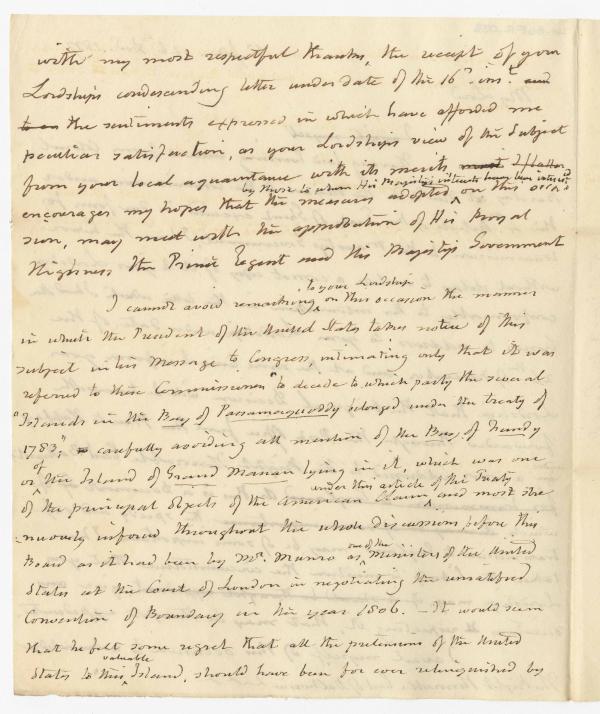 with my most respectful thanks, the receipt of your
Lordships condescending letter under date of the 16th inst. and
to on the sentiments expressed in which have afforded me
peculiar satisfaction, as your Lordships view of the Subject
from your local acquaintance with its merits, most I flatter
by those to whom His Majestys interests have been intrusted
encourages my hopes that the measures adopted ^ on this occa
sion, may meet with the approbation of His Royal
Highness the Prince Regent and His Majestys Government
to your Lordship
I cannot avoid remarking ^ on this occasion the manner
in which the President of the United States takes notice of this
subject in his Message to Congress, intimating only that it was
referred to these Commissioners "to decide to which party the several
"Islands in the Bay of Passamaquoddy belonged under the treaty of
1783", carefully avoiding all mention of the Bay of Fundy
of
or ^ the Island of Grand Manan lying in it, which was one
under this article of the Treaty
of the principal objects of the American Claim ^ and most stre
=nuously inforced throughout the whole discussions before this
one of the
Board as it had been by Mr. Munro as ^ Ministers of the United
States at the Court of London in negotiating the unratified
Convention of Boundary in the year 1806. – It would seem
that he felt some regret that all the pretensions of the United
valuable
States to this ^ Island, should have been for ever relinquished by